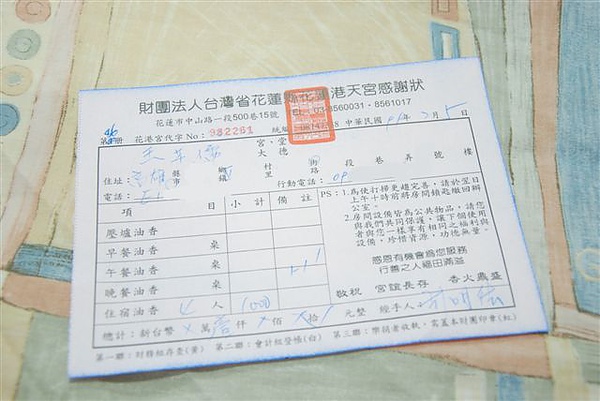 財團法人台灣省花蓮 港天宮感謝狀
花蓮市中山路一段500巷15號 03-8560031・8561017
花港宮代字No:982261 統編 中華民國 年 月 5 日
第46冊
宮、堂
大德
住址: 高雄 縣市 鄉鎮 村里 街路 段 巷 弄 號 樓
電話: 行動電話:09
項 目 小計 備註
壓爐油香
早餐油香 桌
午餐油香 桌
晚餐油香 桌
住宿油香 4 人 1000
總計:新台幣 萬 壹 仟 佰 拾 元整 經手人
PS:1.為使打掃更趨完善,請於翌日
上午十時前將房間鑰匙繳回辦
公室。
2.房間設備皆為公共物品,請您使用
與我們共同保護,讓下個使用
者與您一樣享有相同之福利與
設備,珍惜資源,功德無量。
感恩有機會為您服務
行善之人福田滿溢
敬祝 宮誼長存 香火鼎盛
第一聯:財務組存查(黃) 第二聯:會計組登帳(白) 第三聯:樂捐者收執,需蓋本財團印章(紅)